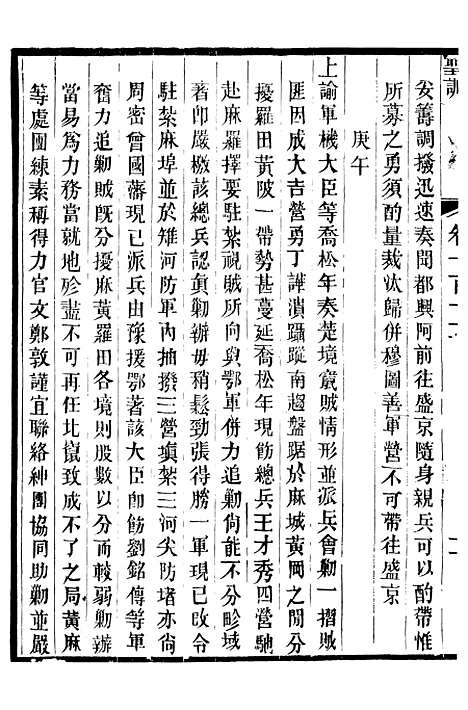 聖訓
卷一百
妥籌調撥迅速奏聞都興阿前往盛京隨身親兵可以酌帶惟
所募之勇須酌量裁汰歸併穆圖善軍營不可帶往盛京
庚午
上諭軍機大臣等喬松年奏楚境竄賊情形並派兵會勦一摺賊
匪因成大吉營勇丁譁潰躡蹤南趨盤踞於麻城黃岡之閒分
擾羅田黃陂一帶勢甚蔓延喬松年現飭總兵王才秀四營馳
赴麻羅擇要駐紮視賊所向與鄂軍併力追勦尙能不分畛域
著卽嚴檄該總兵認眞勦辦毋稍鬆勁張得勝一軍現已改令
駐紮麻埠並於雉河防軍內抽撥三營塡紮三河尖防堵亦尙
周密曾國藩現已派兵由豫援鄂著該大臣卽飭劉銘傳等軍
奮力追勦賊旣分擾麻黃羅田各境則股數以分而較弱勦辦
當易爲力務當就地殄盡不可再任北竄致成不了之局黃麻
等處團練素稱得力官文鄭敦謹宜聯絡紳團協同助勦並嚴